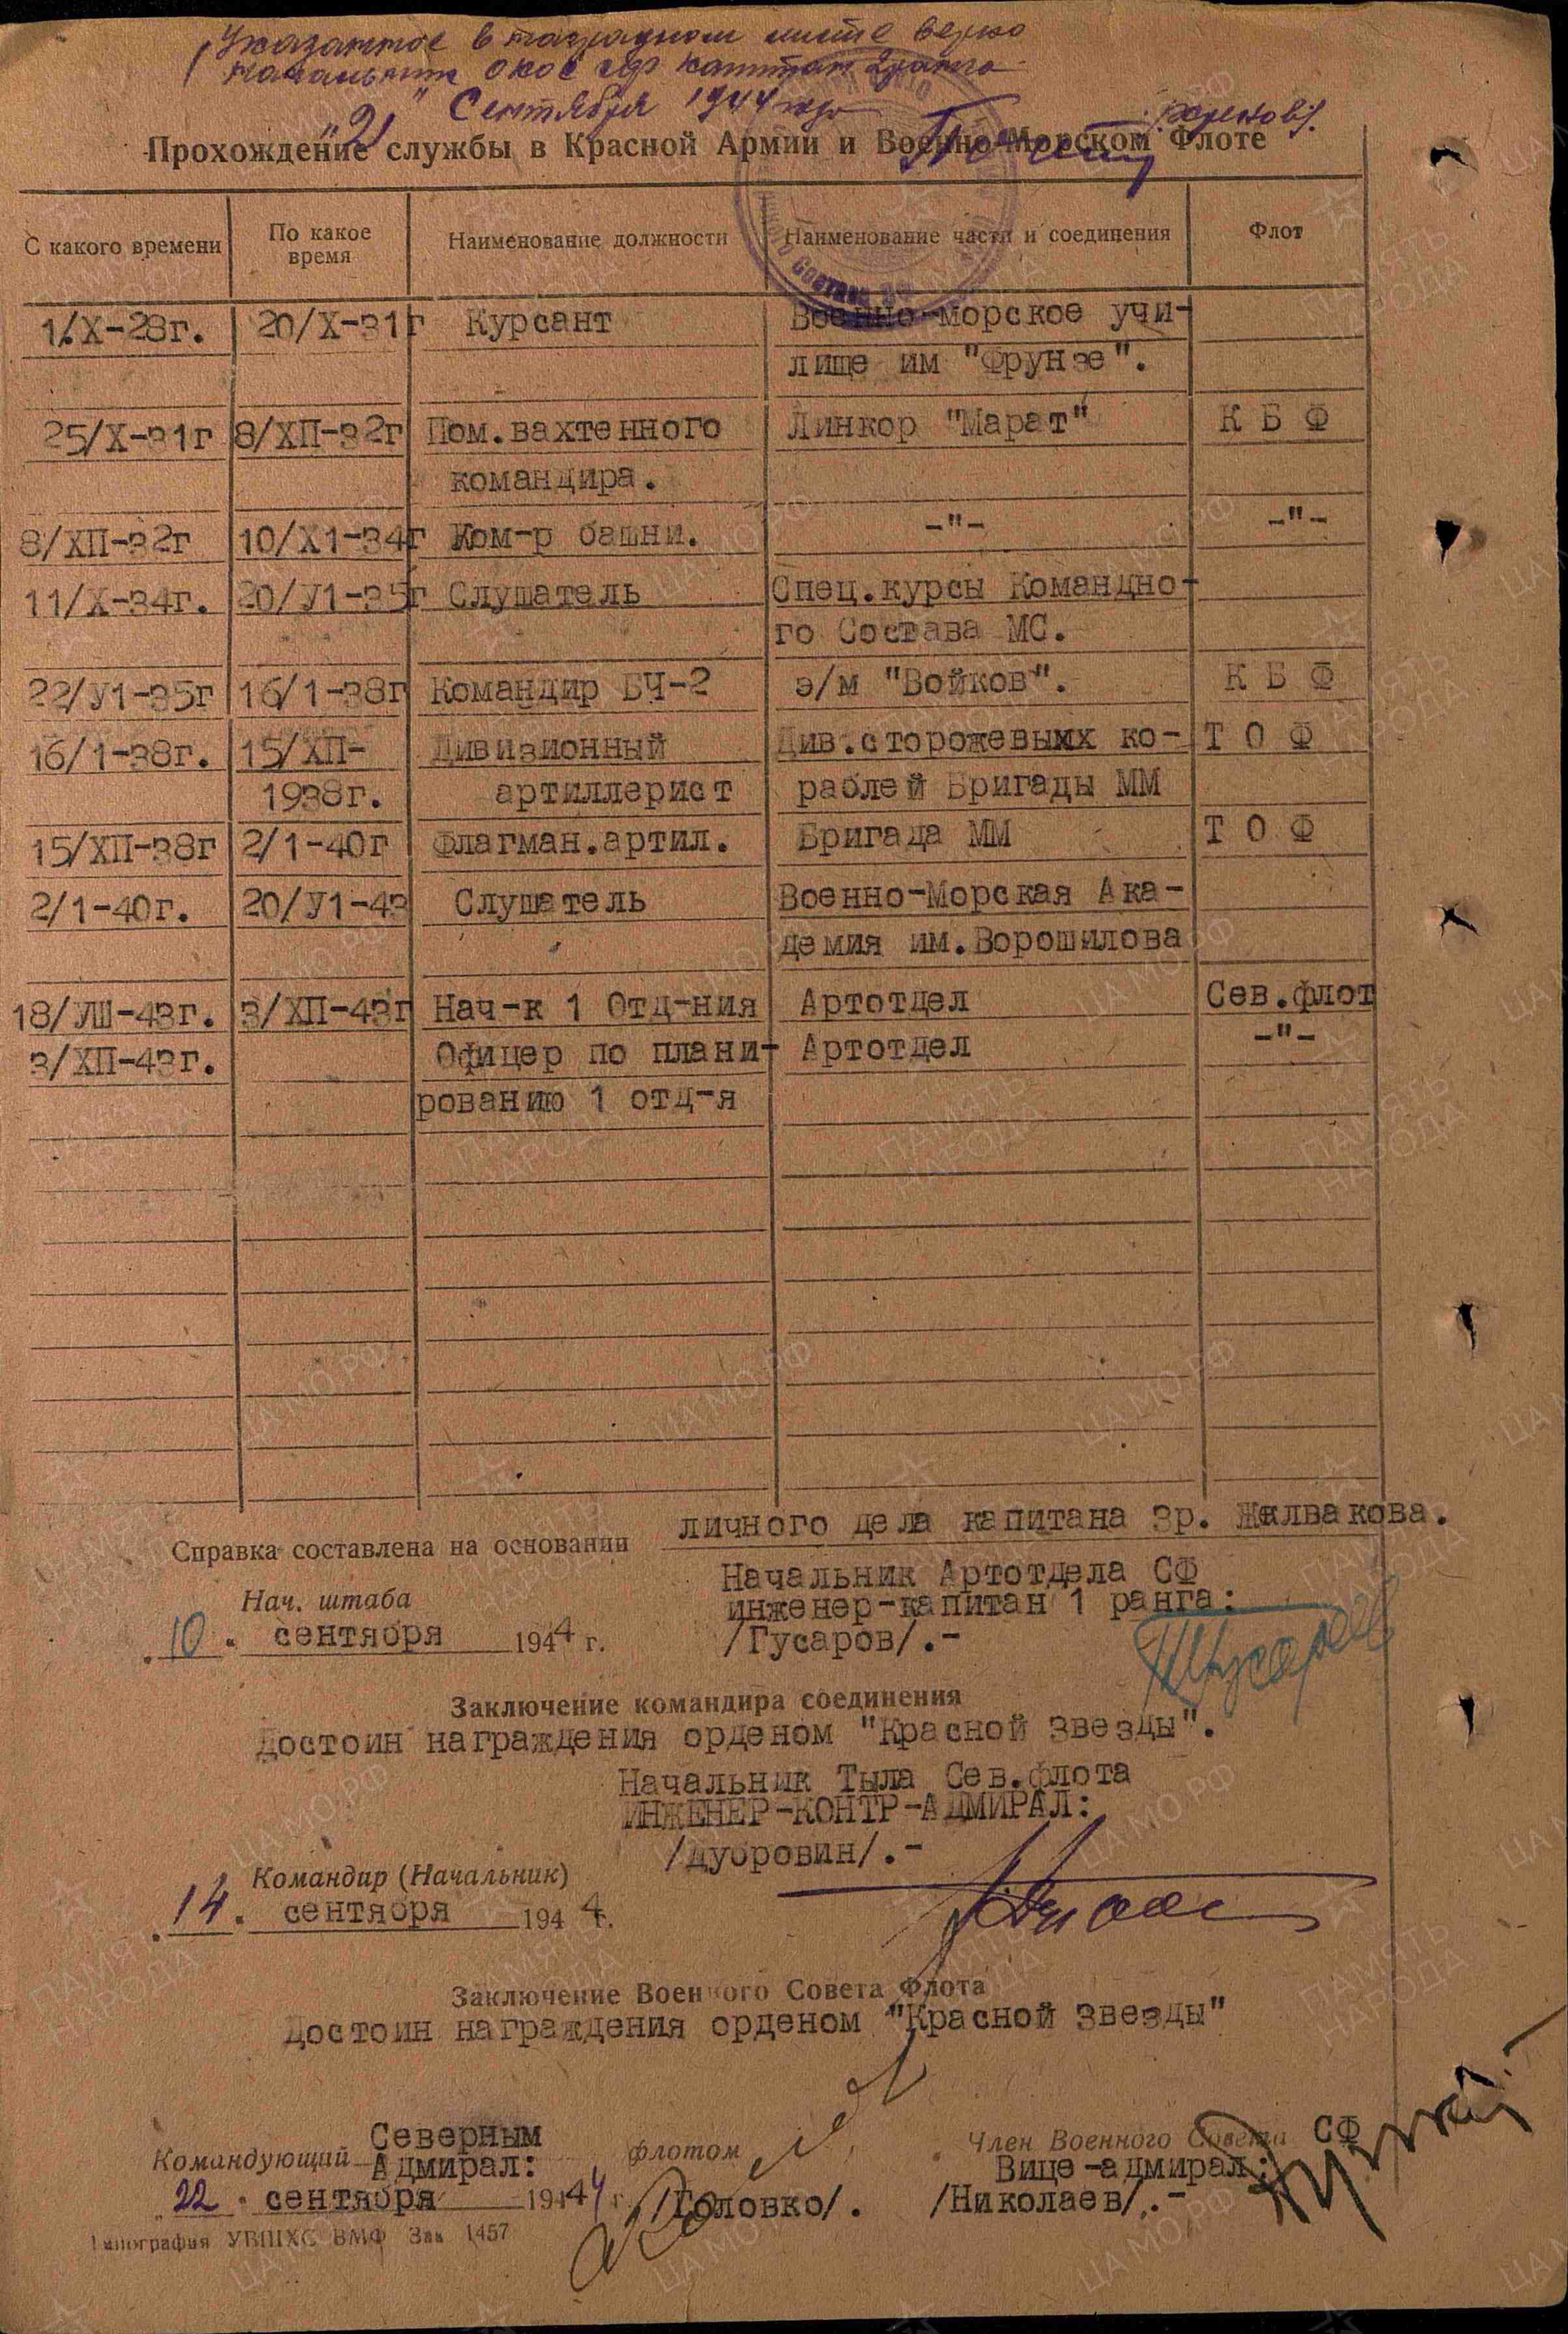 Указанное в наградном листе верно
Начальник ОКОС СФ капитан 2 ранга
"21" Сентября 1944 года
Прохождение службы в Красной Армии и Военно-Морском Флоте
С какого времени | По какое время | Наименование должности | Наименование части и соединения | Флот
1/X-28г. | 20/X-31г | Курсант | Военно-морское учи-
лище им "Фрунзе".
25/X-31г | 8/ХП-32г | Пом.вахтенного | Линкор "Марат" | К Б Ф
командира.
8/ХП-32г | 10/X1-34г | Ком-р башни. | -"- | -"-
11/X-34г. | 20/У1-35г | Слушатель | Спец.курсы Командно-
го Состава МС.
22/У1-35г | 16/1-38г | Командир БЧ-2 | э/м "Войков". | К Б Ф
16/1-38г. | 15/ХП- | Дивизионный | Див.сторожевыих ко- | Т О Ф
1938г. | артиллерист | раблей Бригады ММ
15/ХП-38г | 2/1-40г | Флагман.артил. | Бригада ММ | Т О Ф
2/1-40г. | 20/У1-43 | Слушатель | Военно-Морская Ака-
демия им.Ворошилова
18/УШ-43г. | 3/ХП-43г | Нач-к 1 Отд-ния | Артотдел | Сев.флот
3/ХП-43г. | Офицер по плани- | Артотдел | -"-
рованию 1 отд-я
Справка составлена на основании личного дела капитана 3р. Жалвакова.
Начальник Артотдела СФ
Нач. штаба инженер-капитан 1 ранга:
"10" сентября 1944 г. /Гусаров/.-
Заключение командира соединения
Достоин награждения орденом "Красной Звезды".
Начальник Тыла Сев.флота
ИНЖЕНЕР-КОНТР-АДМИРАЛ:
/Дубровин/.-
Командир (Начальник)
"14" сентября 1944 г.
Заключение Военного Совета Флота
Достоин награждения орденом "Красной Звезды"
Командующий Северным флотом Член Военного Совета СФ
Адмирал: Вице-адмирал:
"22" сентября 1944 г. /Головко/. /Николаев/.-
Типография УВШХС ВМФ Зак 1457
ПАМЯТЬ НАРОДА
ЦА МО.РФ